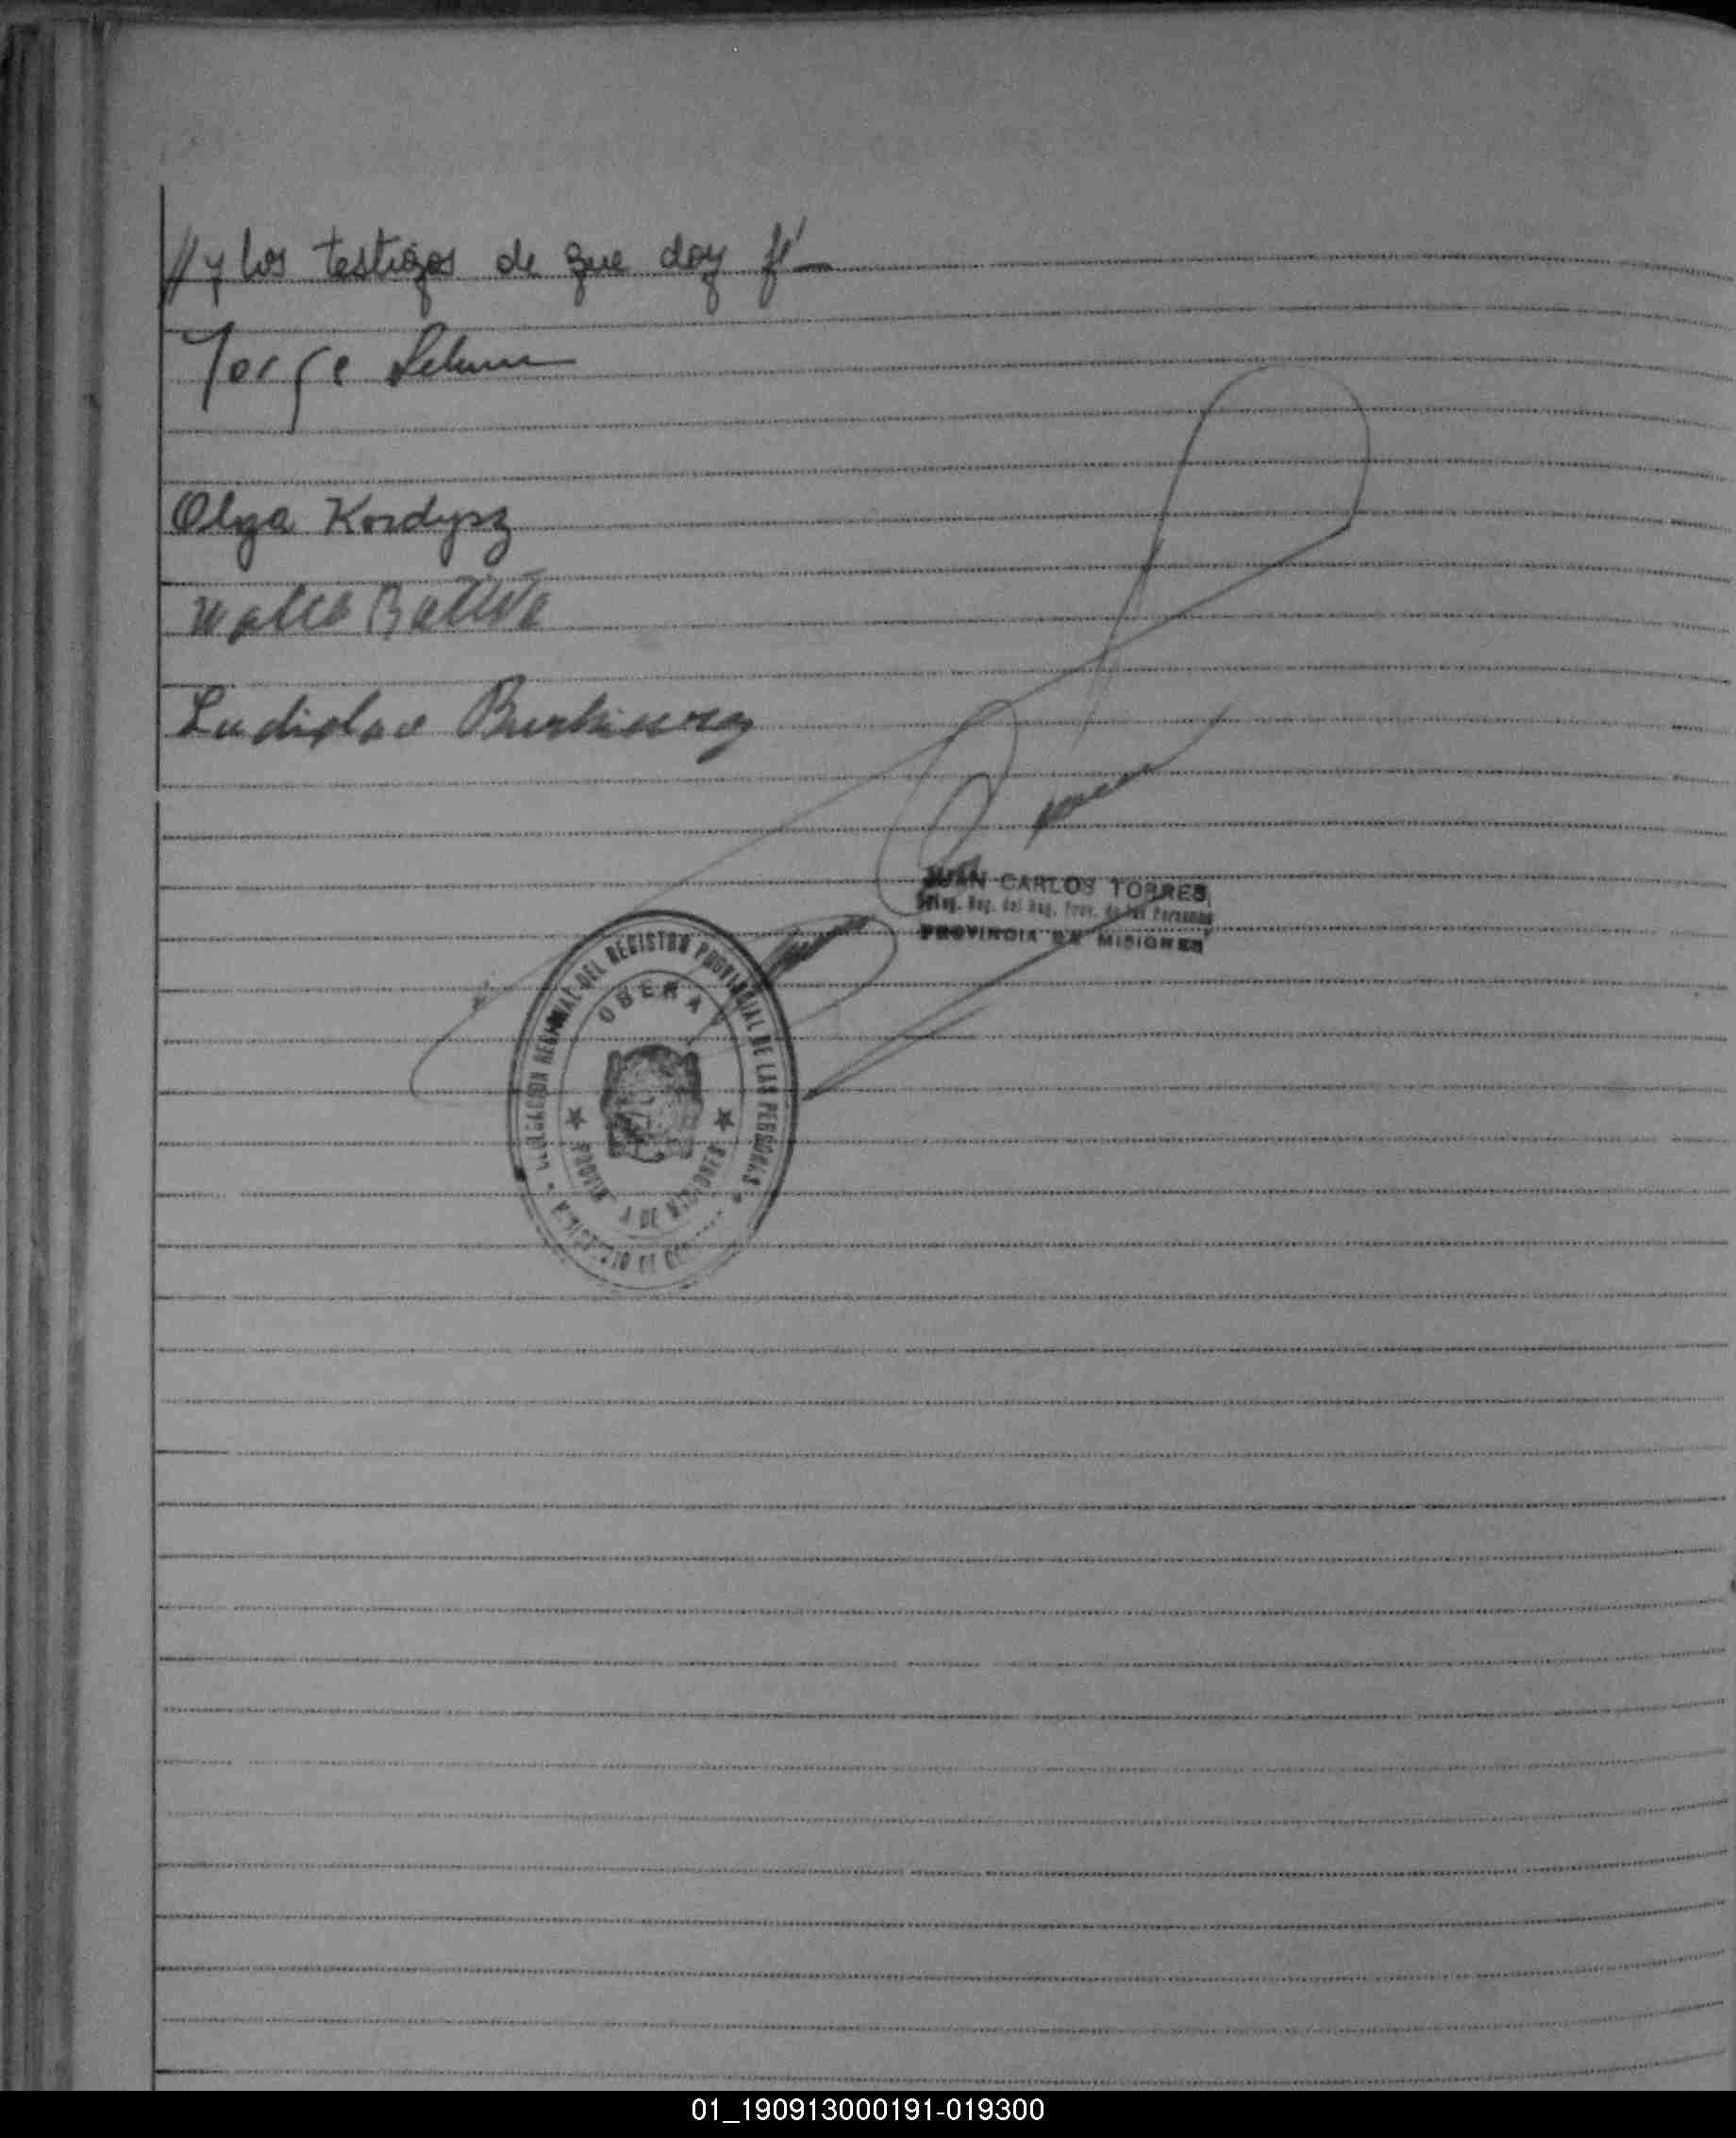 // y los testigos de que doy fé —
Jorge
Olga Kordysz
Ladislao
JUAN CARLOS TORRES
Deleg. Reg. del Reg. Prov. de las Personas
PROVINCIA DE MISIONES
REGIONAL DEL REGISTRO PROVINCIAL DE LAS PERSONAS
OBERA
DE MISIONES
01_190913000191-019300